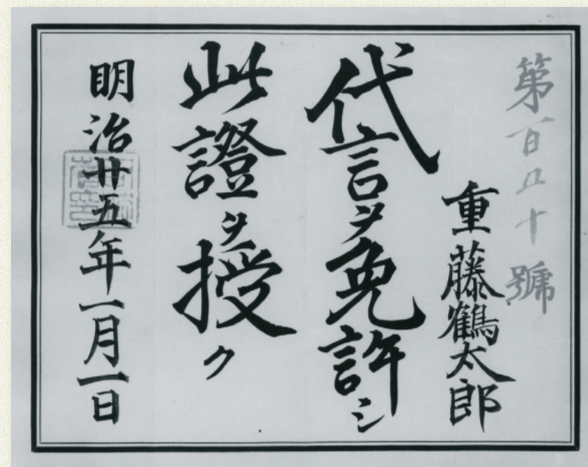 第百五十號
重藤鶴太郎
代言ヲ免許シ
此證ヲ授ク
明治廿五年一月一日